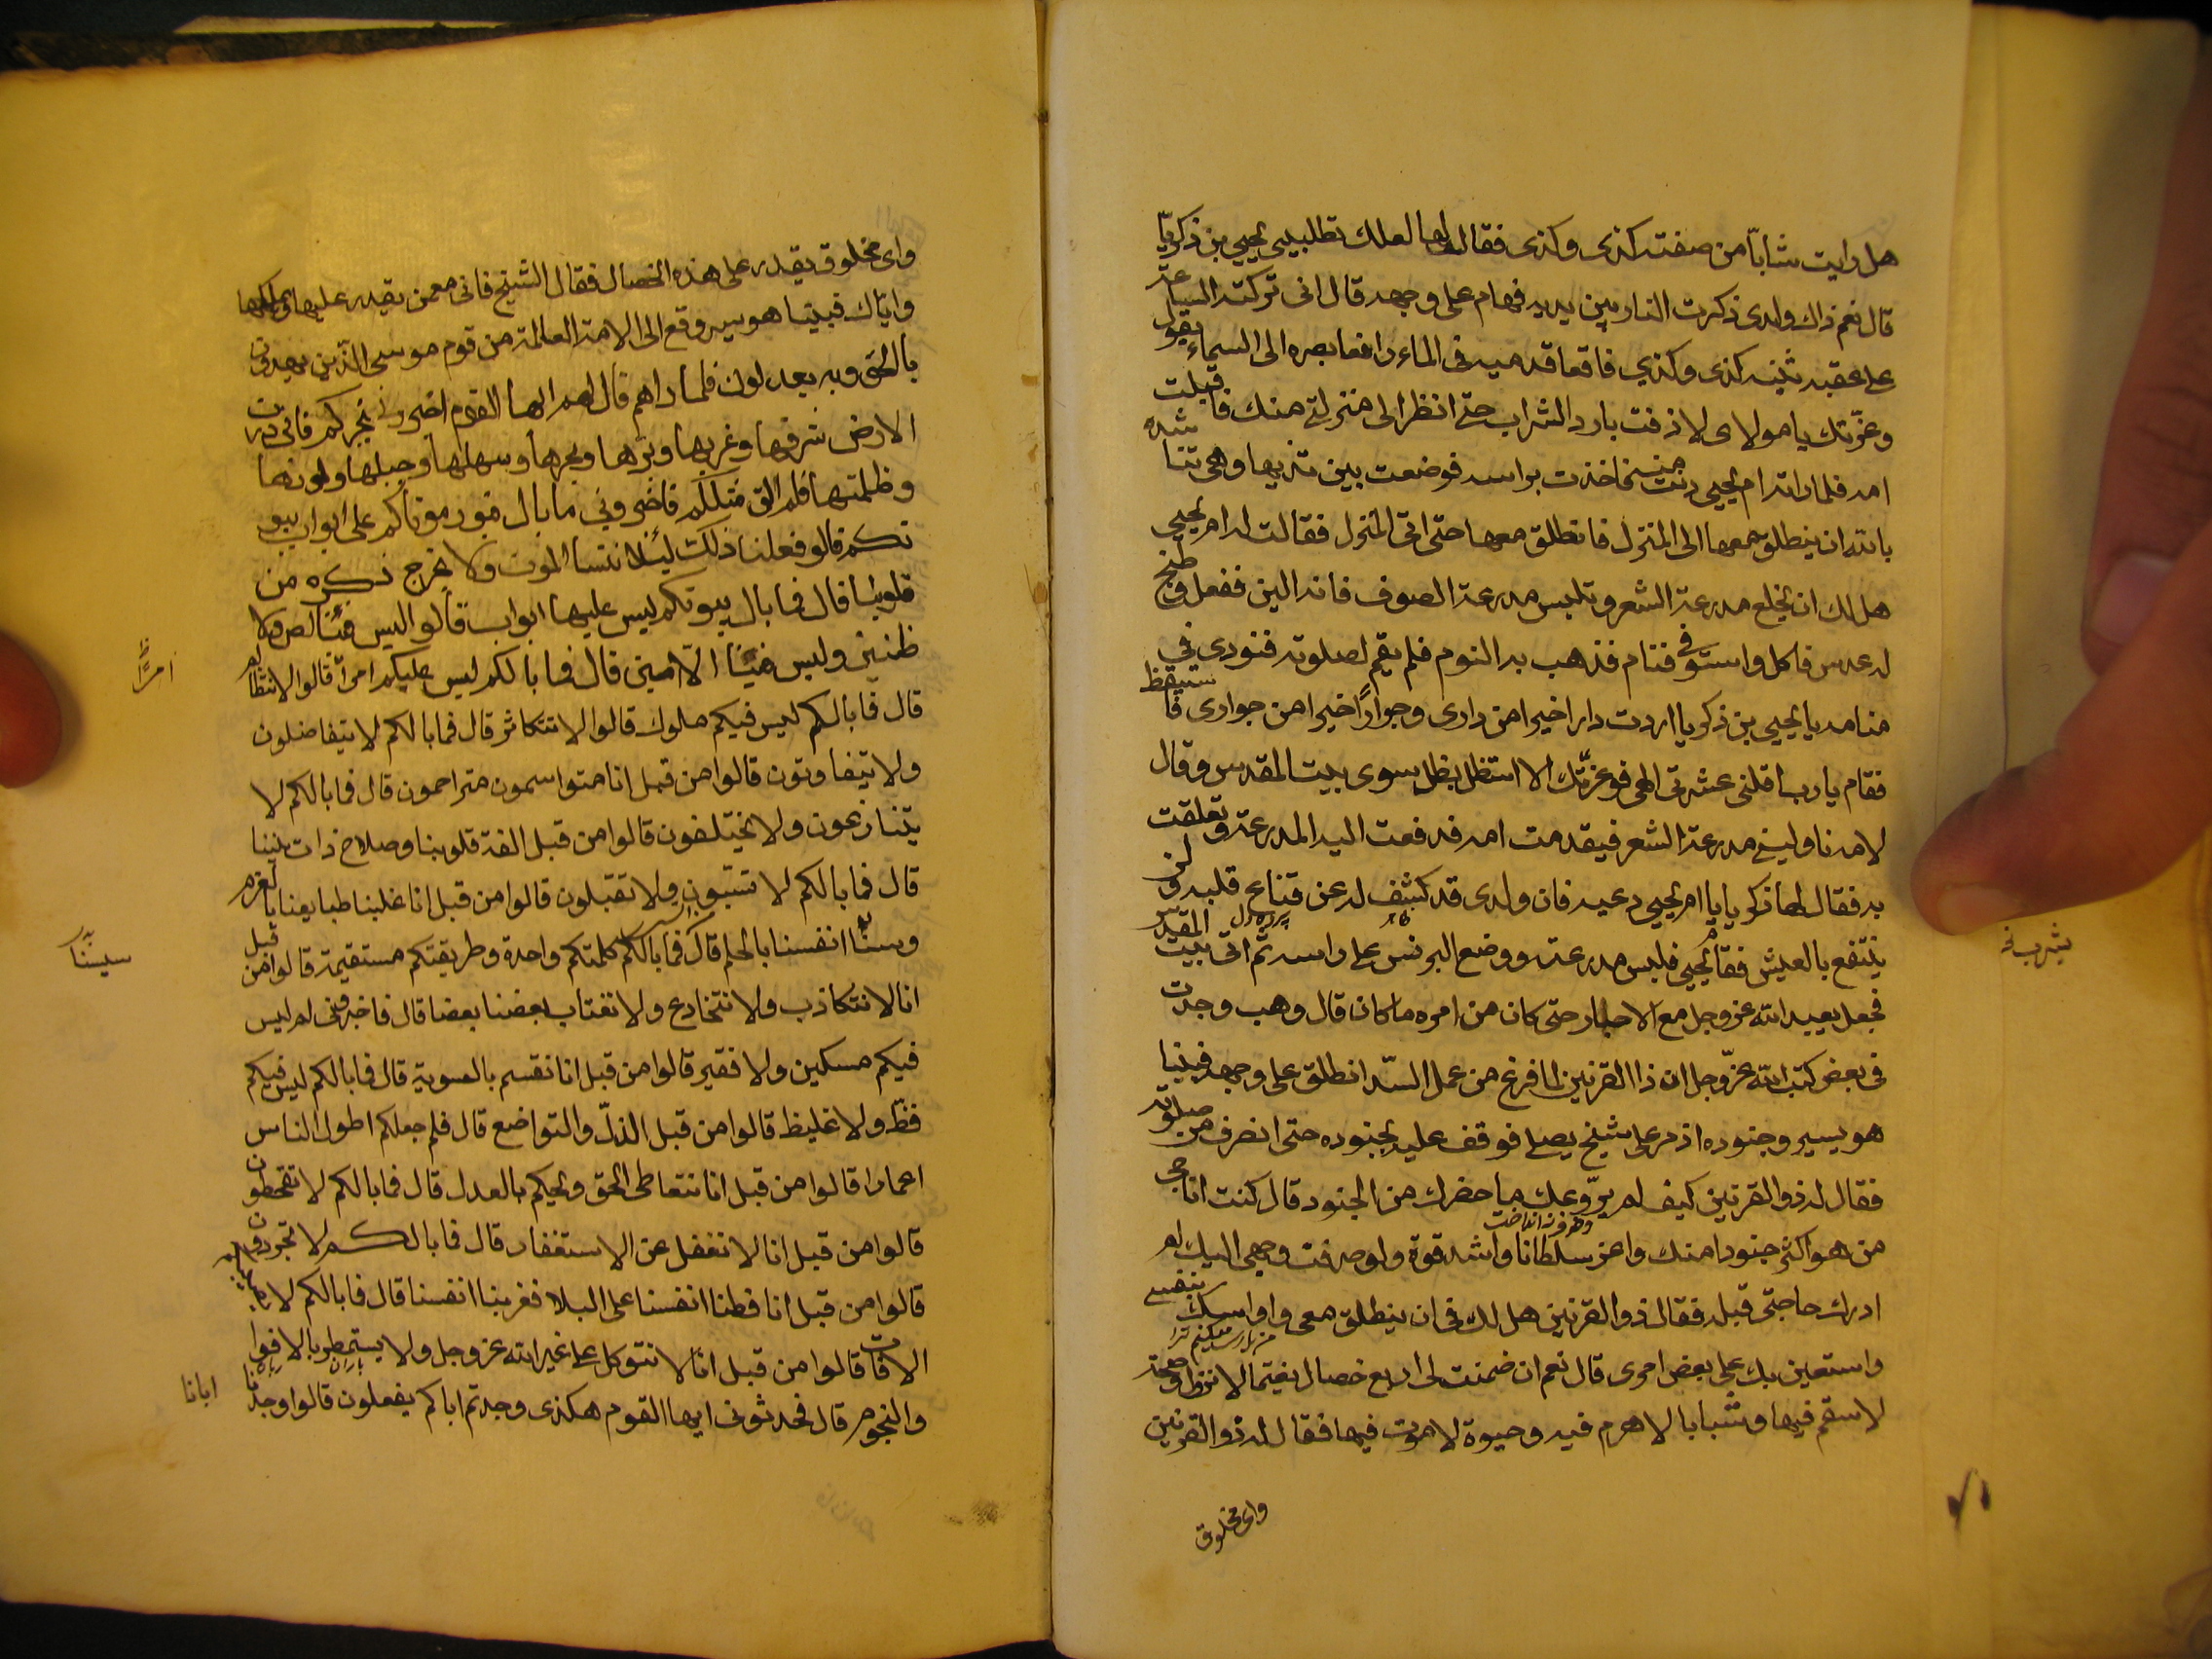 هل رايت شابا من صفته كذى وكذى فقال لها لعلك تطلبين يحيى بن زكريا
قال نعم ذاك ولدى ذكرت النار بين يديه فهام على وجهه قال انى تركته الساعة
على عقبة ثنية كذى وكذى ناقعا قدميه فى الماء رافعا بصره الى السماء يقول
وعزتك يا مولاى لا ذقت بارد الشراب حتى انظر الى منزلتى منك فاقبلت
امه فلما راته ام يحيى دنت منه فاخذت براسه فوضعت بين ثدييها وهى تناشده
بالله ان ينطلق معها الى المنزل فانطلق معها حتى اتى المنزل فقالت له ام يحيى
هل لك ان تخلع مدرعة الشعر وتلبس مدرعة الصوف فانه الين ففعل وطبخ
له عدس فاكل واستوفى فنام فذهب به النوم فلم يقم لصلوته فنودى فى
منامه يا يحيى بن زكريا اردت دارا خيرا من دارى وجوارا خيرا من جوارى فاستيقظ
فقام يا رب اقلنى عثرتى الهى فوعزتك لا استظل بظل سوى بيت المقدس وقال
لامه ناولينى مدرعة الشعر فتقدمت امه فدفعت اليه المدرعة وتعلقت
به فقال لها زكريا يا ام يحيى دعيه فان ولدى قد كشف له عن قناع قلبه ولن
ينتفع بالعيش فقام يحيى فلبس مدرعته ووضع البرنس على راسه ثم اتى بيت المقدس
فجعل يعبد الله عز وجل مع الاحبار حتى كان من امره ما كان قال وهب وجدت
فى بعض كتب الله عز وجل ان ذا القرنين لما فرغ من عمل السد انطلق على وجهه فبينا
هو يسير وجنوده اذ مر على شيخ يصلى فوقف عليه بجنوده حتى انصرف من صلوته
فقال له ذو القرنين كيف لم يروعك ما حضرك من الجنود قال كنت اناجى
من هو اكثر جنودا منك واعز سلطانا واشد قوة ولو صرفت وجهى اليك لم
ادرك حاجتى قبله فقال ذو القرنين هل لك فى ان ينطلق معى واواسيك بنفسى
واستعين بك على بعض امرى قال نعم ان ضمنت لى اربع خصال نعيما لا يزول وصحة
لا سقم فيها وشبابا لا هرم فيه وحيوة لا موت فيها فقال له ذو القرنين
واى مخلوق
يشرب خ
واى مخلوق يقدر على هذه الخصال فقال الشيخ فانى مع من يقدر عليها ويملكها
واياك فبينا هو يسير وقع الى الامة العالمة من قوم موسى الذين يهدون
بالحق وبه يعدلون فلما راهم قال لهم ايها القوم اخبرونى بخبركم فانى درت
الارض شرقها وغربها وبرها وبحرها وسهلها وجبلها ونورها
وظلمتها فلم الق مثلكم فاخبرونى ما بال قبور موتاكم على ابواب بيو
تكم قالو فعلنا ذلك لئلا ننسا الموت ولا يخرج ذكره من
قلوبنا قال فما بال بيوتكم ليس عليها ابواب قالو اليس فينا لص ولا
ظنين وليس فينا الا امين قال فما بالكم ليس عليكم امرا قالوا لا نتظالم
قال فما بالكم ليس فيكم ملوك قالوا لا نتكاثر قال فما بالكم لا يتفاضلون
ولا يتفاوتون قالوا من قبل انا متواسمون متراحمون قال فما بالكم لا
يتنازعون ولا يختلفون قالوا من قبل الفة قلوبنا وصلاح ذات بيننا
قال فما بالكم لا تستبون ولا تقتلون قالوا من قبل انا غلبنا طبايعنا بالعزم
وسسنا انفسنا بالحلم قال فما بالكم كلمتكم واحدة وطريقتكم مستقيمة قالوا من قبل
انا لا نتكاذب ولا نتخادع ولا نغتاب بعضنا بعضا قال فاخبرونى لم ليس
فيكم مسكين ولا فقير قالوا من قبل انا نقسم بالسوية قال فما بالكم ليس فيكم
فظ ولا غليظ قالوا من قبل الذل والتواضع قال فلم جعلكم اطول الناس
اعمارا قالوا من قبل انا نتعاطى الحق ونحكم بالعدل قال فما بالكم لا تقحطون
قالوا من قبل انا لا نغفل عن الاستغفار قال فما بالكم لا تجردون
قالوا من قبل انا وطنا انفسنا على البلا فعزينا انفسنا قال فما بالكم لا
الافات قالوا من قبل انا لا نتوكل على غير الله عز وجل ولا يستمطر بالانوا
والنجوم قال فحدثونى ايها القوم هكذى وجدتم اباكم يفعلون قالوا وجدنا
امرا
سسنا
ابانا